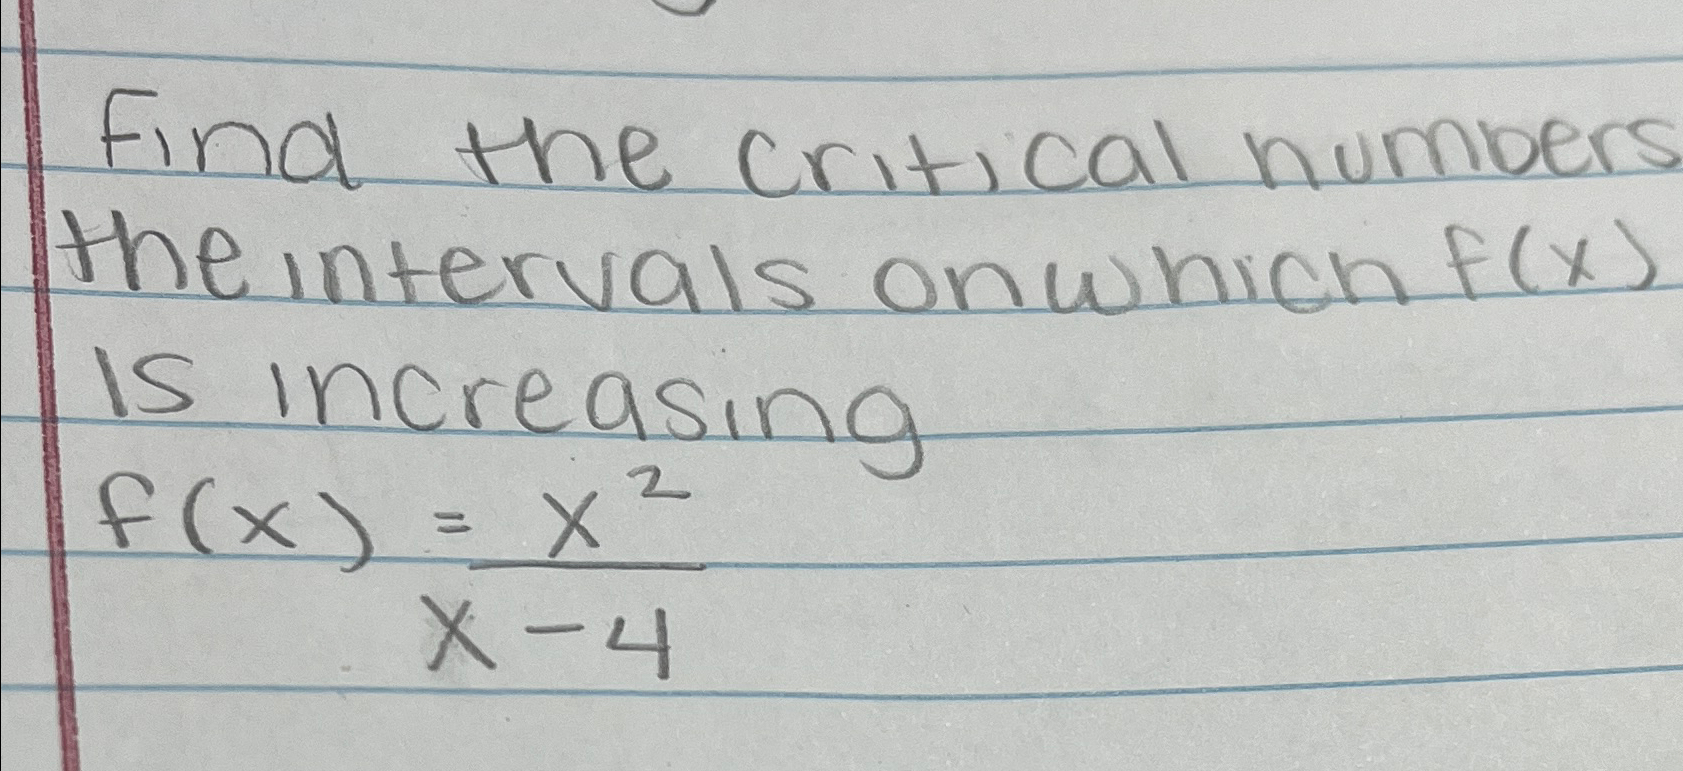 Find the critical numbers
the intervals on which f(x)
is increasing
f(x) = x²
x - 4